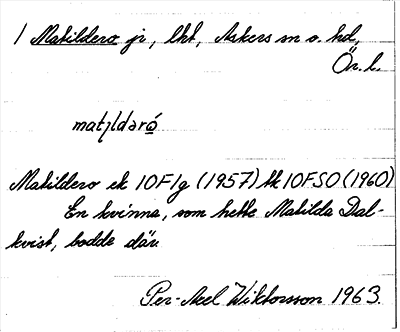 1 Matildero jr, lht, Askers sn o. hd,
Ör. l.
matıldəró
Matildero ek 10F1g (1957) tk 10F SO (1960)
En kvinna, som hette Matilda Dal-
kvist, bodde där.
Per-Axel Wiktorsson 1963.